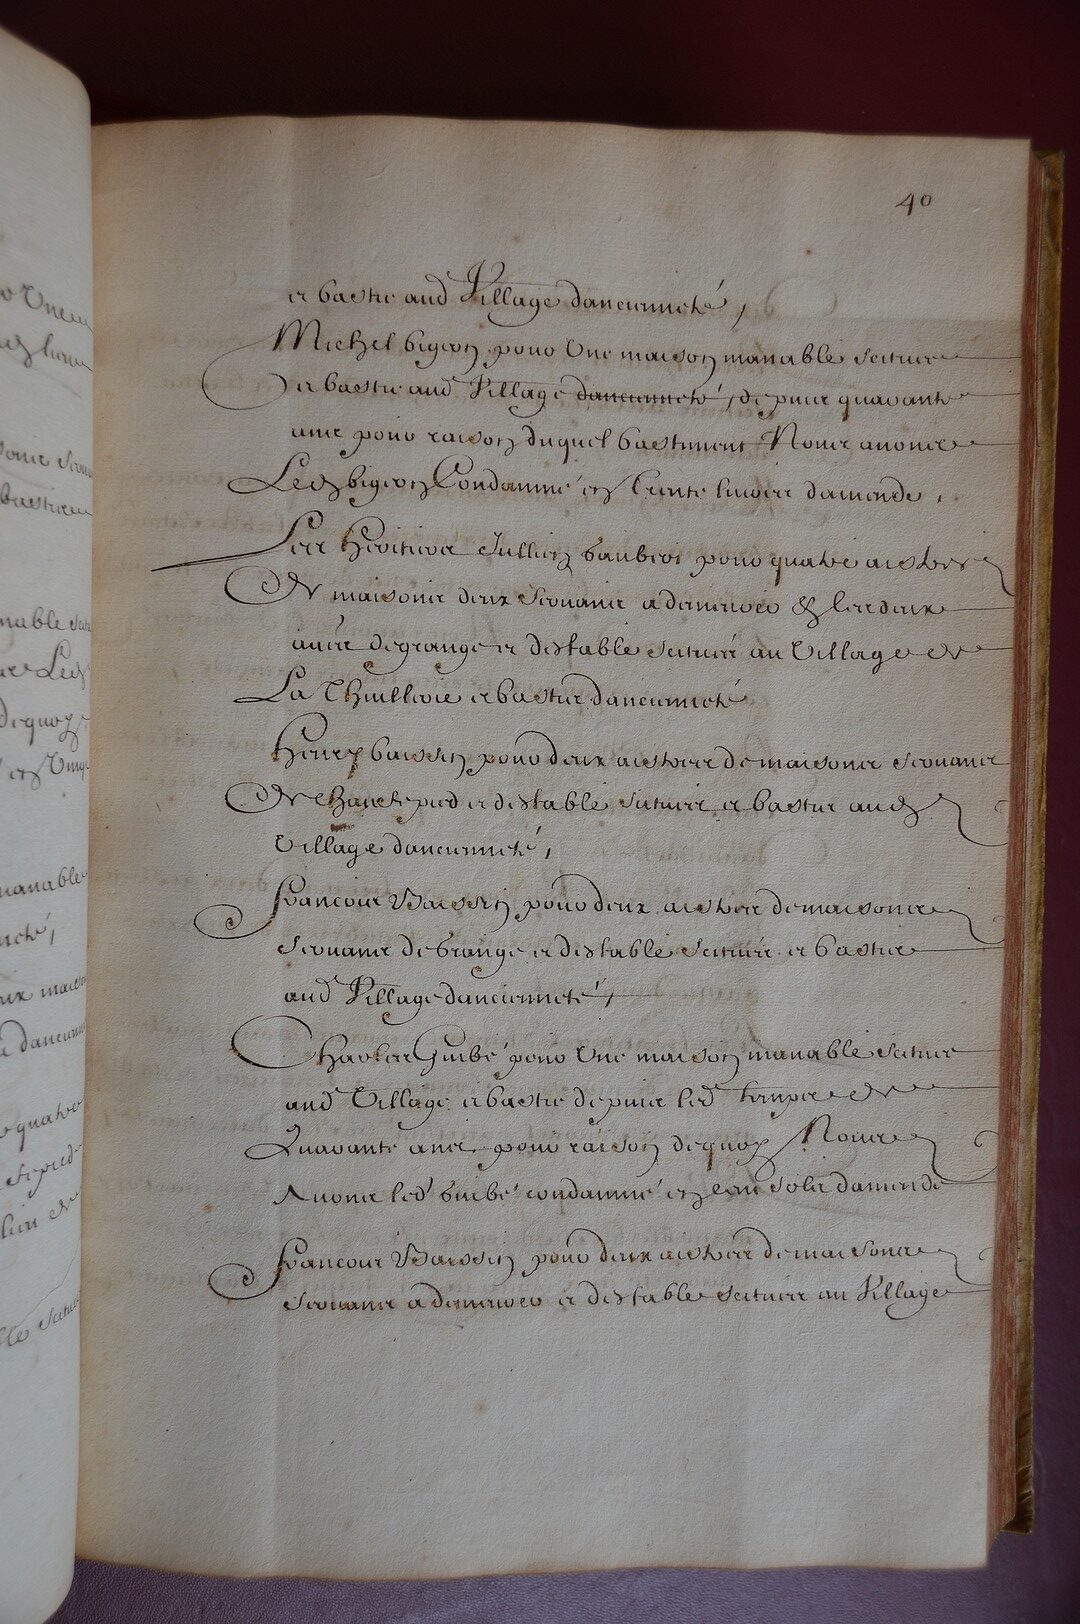 40
et bastie aud Village dancienneté,
Michel bigeon pour Une maison manable scituee
et bastie aud Village dancienneté, depuis quarante
ans pour raison duquel bastiment Nous avons
Led bigeon Condamné en trente livres damende,
Les Heritiers Jullien gaubert pour quatre aistres
De maisons deux servans a demeurer & les deux
autres de grange et destable scituées au Village de
La Thuillerie et basties dancienneté
Henry baissin pour deux aistres de maisons servans
De Chaufepied et destable scituees et basties aud
Village dancienneté,
Francois Baissin pour deux aistres de maisons
servans de Grange et destable scituées et basties
aud Village dancienneté,
Charles Guibé pour Une maison manable scituee
aud Village et bastie depuis led temps de
Quarante ans pour raison de quoy Nous
Avons led Guibé condamné en cent sols damende
Francois Baissin pour deux aistres de maisons
servans a demeurer et destable scituees au Village